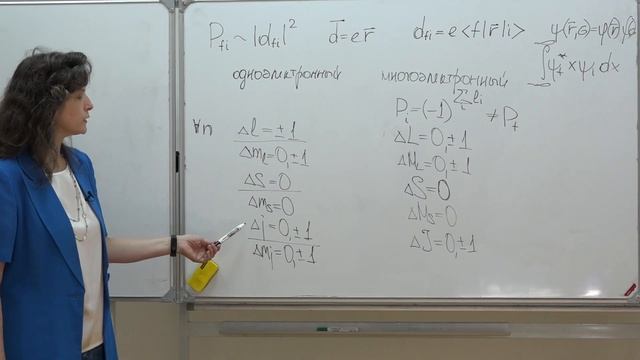 P_fi ~ |d_fi|² d⃗ = er⃗ d_fi = e<f|r⃗|i> ψ(r⃗,σ)=φ(r⃗)
∫ψ_f* x ψ_i dx
одноэлектронный многоэлектронный
P_i = (-1)^{Σ_i l_i} ≠ P_f
∀n Δl = ±1 ΔL = 0, ±1
Δm_l = 0, ±1 ΔM_L = 0, ±1
ΔS = 0 ΔS = 0
Δm_s = 0 ΔM_S = 0
Δj = 0, ±1 ΔJ = 0, ±1
Δm_j = 0, ±1